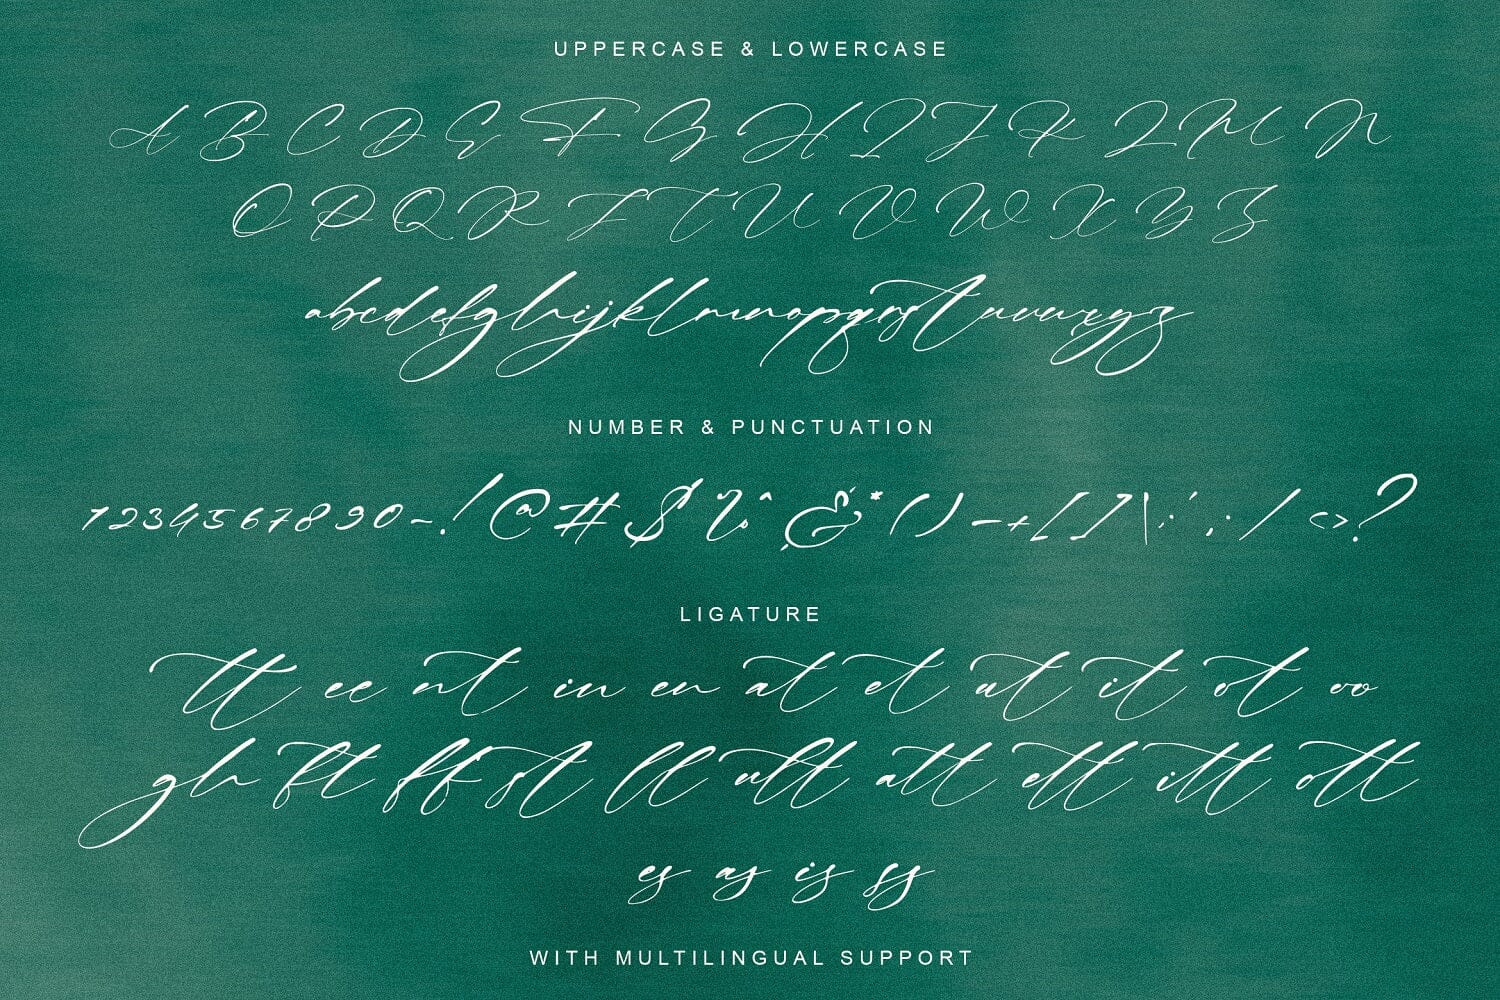 UPPERCASE & LOWERCASE
A B C D E F G H I J K L M N
O P Q R S T U V W X Y Z
abcdefghijklmnopqrstuvwxyz
NUMBER & PUNCTUATION
1234567890-!@#$%^&*()-+[]\;';:/<>?
LIGATURE
tt ee nt in en at et ut it ot oo
gh ft ff st ll ult att ett itt ott
es as is ss
WITH MULTILINGUAL SUPPORT